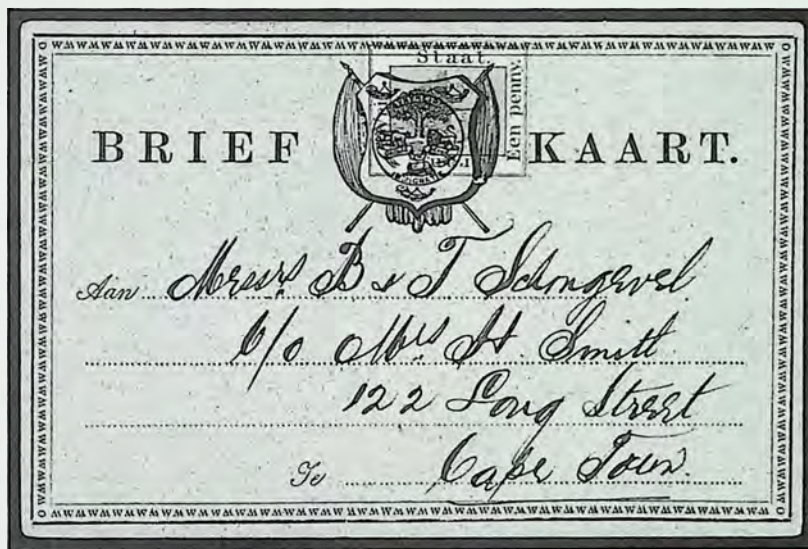 Staat.
Een penny.
BRIEF KAART.
Aan Messrs B & T Schongevel
C/o Mrs H. Smitt
122 Long Street
Te Cape Town.